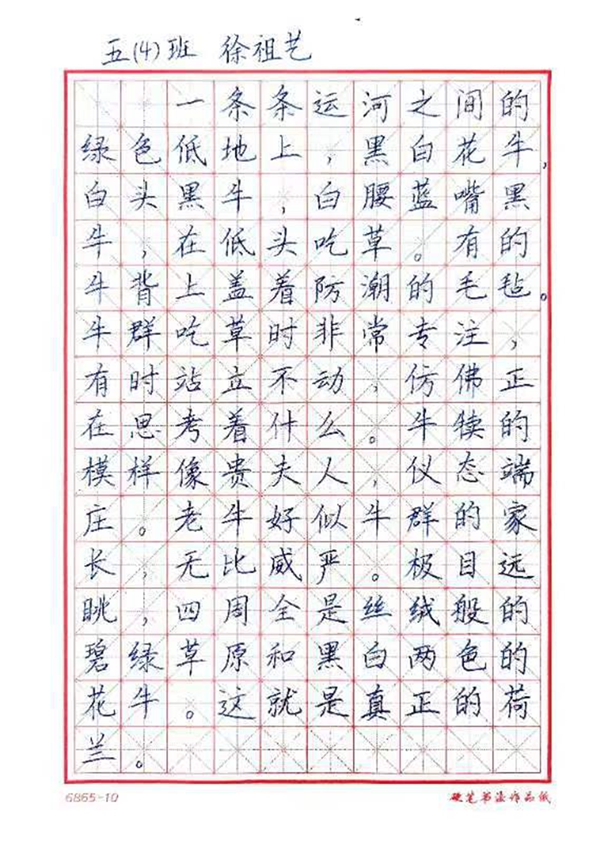 五(4)班 徐祖艺
一条条运河之间的
绿色低地上，黑白花牛，
白头黑牛，白腰蓝嘴黑
牛，在低头吃草。有的
牛背上盖着防潮的毛毡。
牛群吃草时非常专注，
有时站立不动，仿佛正
在思考着什么。牛犊的
模样像贵夫人，仪态端
庄。老牛好似牛群的家
长，无比威严。极目远
眺，四周全是丝绒般的
碧绿草原和黑白两色的
花牛。这就是真正的荷
兰。
6865-10 硬笔书法作品纸